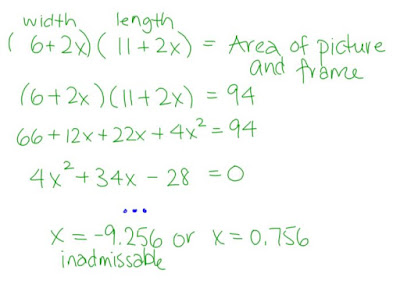 width length
(6+2x)(11+2x) = Area of picture
and frame
(6+2x)(11+2x) = 94
66+12x+22x+4x²=94
4x²+34x-28 =0
...
x=-9.256 or x=0.756
inadmissable